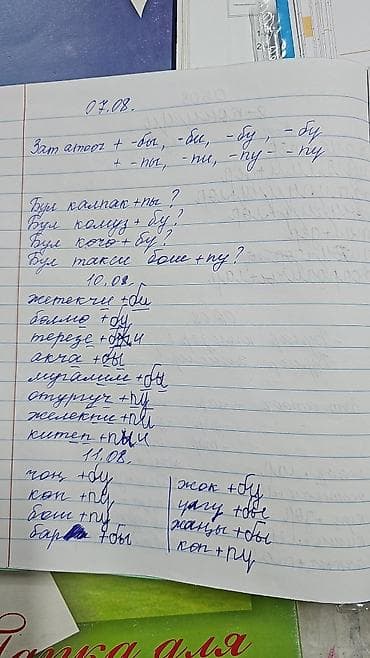 07.08.
Зат атооч + -бы, -би, -бу, -бү
+ -пы, -пи, -пу - -пү
Бул калпак+пы?
Бул комуз + бу?
Бул көчө + бү?
Бул такси бош + пу?
10.08.
жетекчи +би
бөлмө +бү
терезе +би
акча +бы
мугалим +бы
отургуч +пу
желекпи +пи
китеп +пи
11.08.
чоң +бу
көп +пү
бош +пу
бар +бы
жок +бу
ушу +бы
жаңы +бы
көп +пү
Папка для